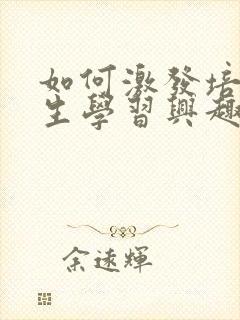 如何激發培
生學習興趣
余遠輝